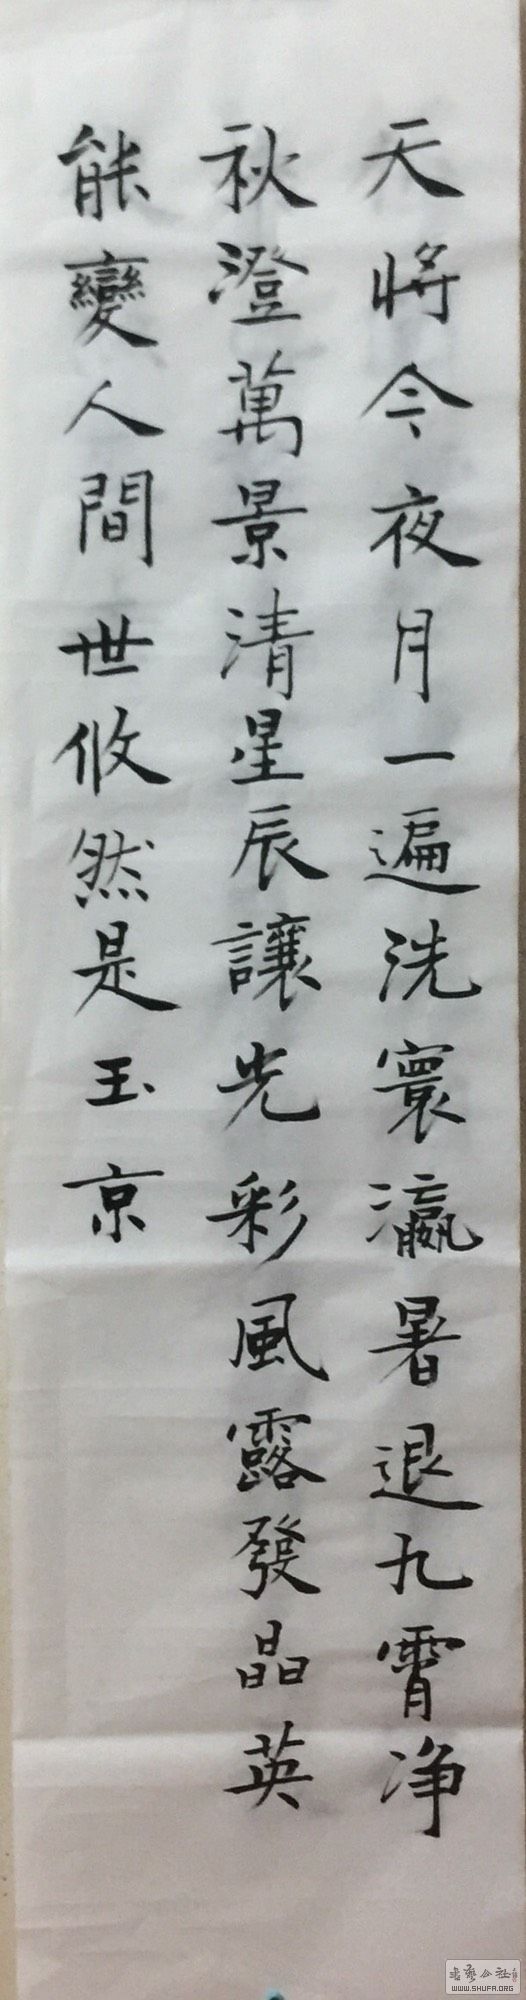 天將今夜月一遍洗寰瀛暑退九霄净
秋澄萬景清星辰讓光彩風露發晶英
能變人間世攸然是玉京
WWW.SHUFA.ORG